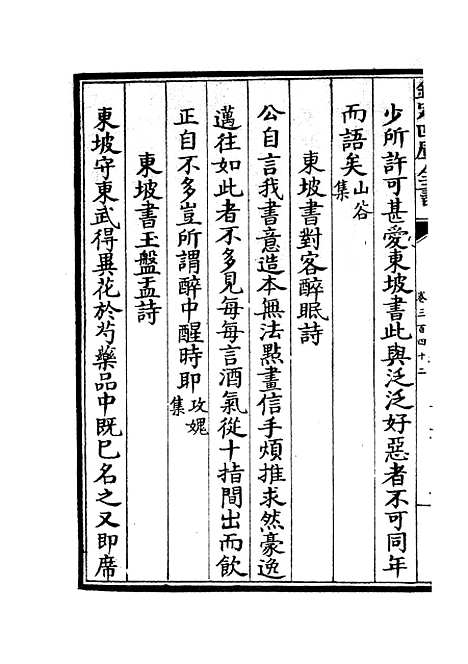 欽定四庫全書
卷三百四十二
少所許可甚愛東坡書此與泛泛好惡者不可同年
而語矣山谷集
東坡書對客醉眠詩
公自言我書意造本無法點畫信手煩推求然豪逸
邁往如此者不多見每每言酒氣從十指間出而飲
正自不多豈所謂醉中醒時即攻媿集
東坡書玉盤盂詩
東坡守東武得異花於芍藥品中既已名之又即席